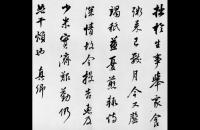 拙於生事舉家食
粥來已數月今又罄
竭祗益憂煎輒恃
深情故令投告惠及
少米實濟艱勤仍
恕干煩也真卿